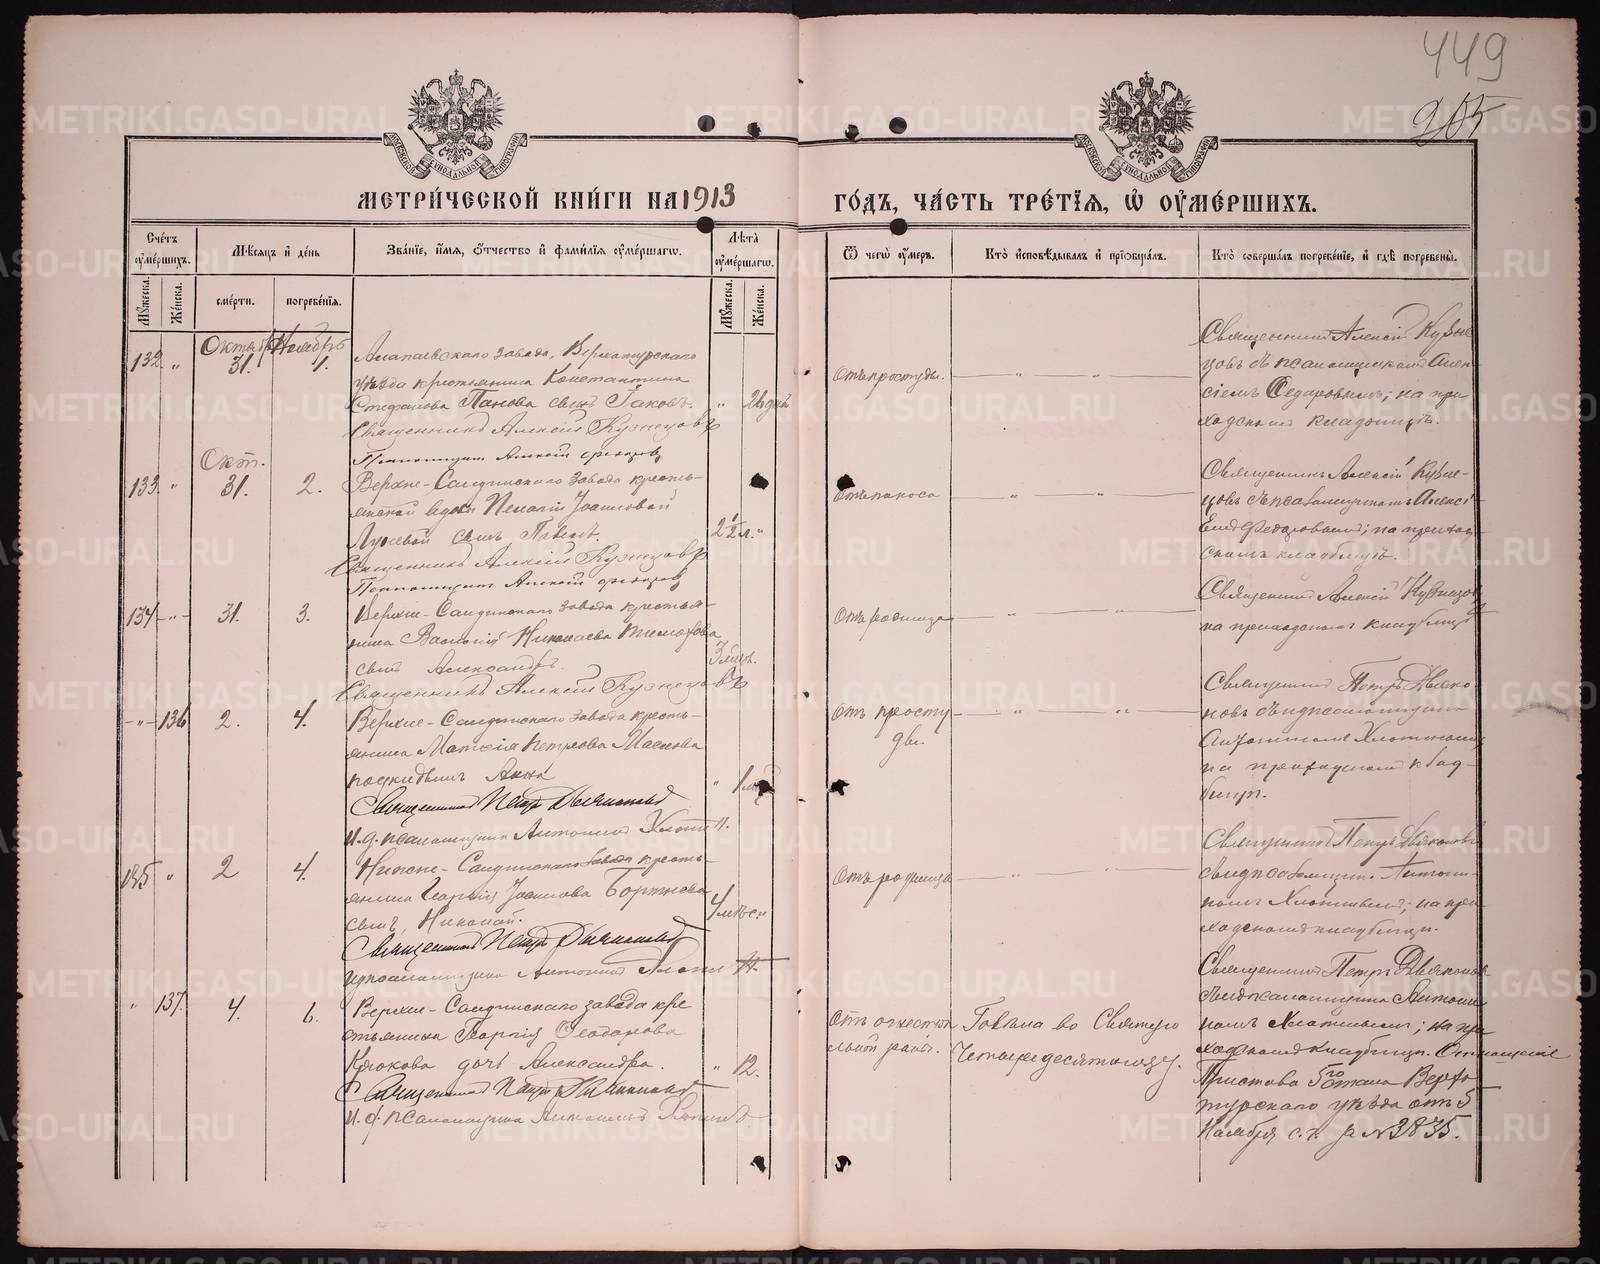 449
905
МЕТРИ́ЧЕСКОЙ КНИ́ГИ НА 1913
ГО́ДЪ, ЧА́СТЬ ТРЕ́ТЇѦ, Ѡ҆ ОУ҆МЕ́РШИХЪ.
Сче́тъ оумершихъ.
Мужеска.
Женска.
Мѣсѧцъ и день
смерти.
погребенїѧ.
Званїе, имѧ, отчество и фамилїѧ оумершагѡ.
Лѣта оумершагѡ.
Мужеска.
Женска.
Ѿ чегѡ оумеръ.
Кто исповѣдывалъ и прїобщалъ.
Кто совершалъ погребенїе, и гдѣ погребены.
132. „
Октябр 31.
Ноябрь 1.
Алапаевскаго завода, Верхотурскаго
уѣзда крестьянина Константина
Стефанова Панова сынъ Іаковъ.
Священникъ Алексій Кузнецовъ
Псаломщикъ Алексій
Отъ простуды.
Священникъ Алексій Кузне-
цовъ съ псаломщикомъ Алек-
сіемъ Ѳедоровымъ; на при-
ходскомъ кладбищѣ.
133. „
Окт. 31.
2.
Верхне-Салдинскаго завода кресть-
янской вдовы Пелагіи Іоанновой
сынъ Павелъ.
2 1/2 л. „
Священникъ Алексій Кузнецовъ
Псаломщикъ Алексій
Отъ поноса
Священникъ Алексій Кузне-
цовъ съ псаломщикомъ Алексі-
емъ Ѳедоровымъ; на приход-
скомъ кладбищѣ.
134 „
31.
3.
Верхне-Салдинскаго завода крестья-
нина Василія Николаева Тимофеева
сынъ Александръ.
3 мѣс.
Священникъ Алексій Кузнецовъ
Отъ родимца
Священникъ Алексій Кузнецовъ
на приходскомъ кладбищѣ
„ 136
2.
4.
Верхне-Салдинскаго завода кресть-
янина Матѳія Петрова
Анна
„ 1
Священникъ Петръ Дьяконовъ
И. д. псаломщика Антонинъ
Отъ просту-
ды.
Священникъ Петръ Дьяко-
новъ съ и д псаломщика
Антониномъ
на приходскомъ клад-
бищѣ.
135 „
2
4.
Нижне-Салдинскаго завода кресть-
янина Георгія Іоаннова
сынъ, Николай.
4 мѣс. „
Священникъ Петръ Дьяконовъ
И д псаломщика Антонинъ
Отъ родимца
Священникъ Петръ Дьяконовъ
съ и д псаломщ. Антони-
номъ; на при-
ходскомъ кладбищѣ.
„ 137.
4.
6.
Верхне-Салдинскаго завода кре
стьянина Георгія Ѳеодорова
Крюкова дочь Александра.
„ 12.
Священникъ Петръ Дьяконовъ
И. д. псаломщика Антонинъ
Отъ огнестрѣ
льной раны.
Говѣла во Святую
Четыредесятницу.
Священникъ Петръ Дьяконовъ
съ и д псаломщика Антони-
номъ; на при-
ходскомъ кладбищѣ. Отношеніе
Пристава 5го стана Верхо-
турскаго уѣзда отъ 5
Ноября с. г. за № 3835.
METRIKI.GASO-URAL.RU